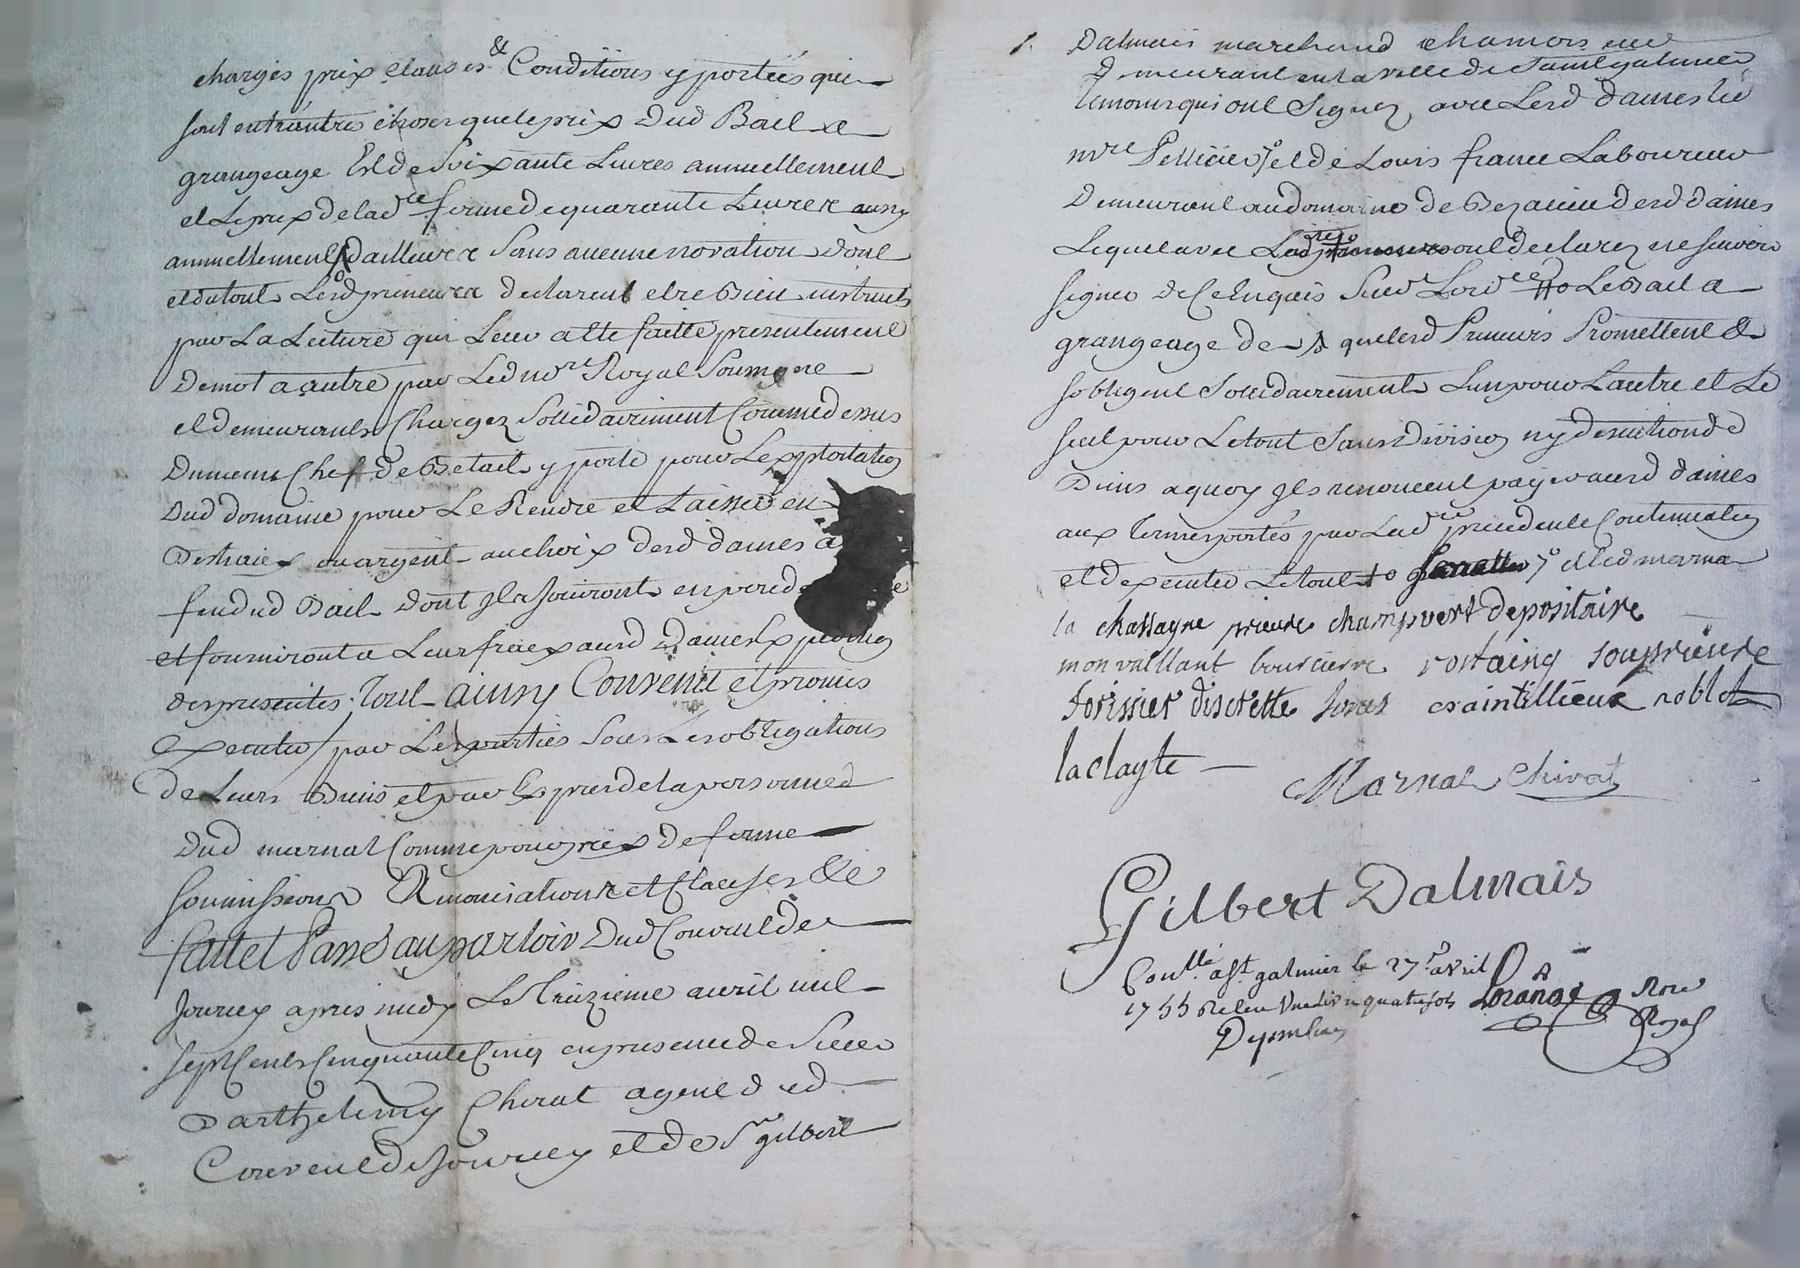 charges prix clauses & Conditions y portées qui
sont entrautre choses que le prix dud Bail a
grangeage Est de Soixante Livres annuellement
et Le prix de lad.te ferme de quarante Livres aussy
annuellement dailleurs Sans aucune novation dont
et du tout Lesd preneurs declarent etre Bien instruits
par La Lecture qui Leur a été faitte presentement
de mot a autre par Led no.re Royal Soussigné
et demeurants Chargez Sollidairement Comme dessus
du meme Chef de Betail y porté pour Lexploitation
dud domaine pour Le Rendre et Laisser en
ou argent au choix desd dames a
fin dud Bail dont Ils Jouiront en
et fourniront a Leur fraix ausd Dames Expedition
des presentes; Tout ainsy Convenu et promis
Executer par Les parties Sous Les obligations
de Leurs Biens et par Exprès de la personne
dud marnat Comme pour prix de ferme
Soumissions Renonciations et Clauses &c
fait et Passé au parloir dud Couvent de
Jourcey apres midy Le treizieme avril mil
sept Cents Cinquante Cinq en presence de Sieur
Barthelemy Chirat agent dud
Couvent de Jourcey et de Sr gilbert
Dalmais marchand chamoiseur
demeurant en la ville de Saint galmier
temoins qui ont Signez avec Lesd dames led
mre Pellicier et de Louis france Laboureur
Demeurant au domaine de desd dames
Lequel avec ont declarez ne scavoir
signer de ce Enquis Le Bail a
grangeage de quelesd Preneurs Promettent &
sobligent Sollidairement Lun pour Lautre et Le
seul pour Le tout Sans Division ny discution de
Biens a quoy Ils renoncent payer ausd dames
aux termes portés par Lad.te precedente Continuation
et dexecuter Le tout et led marna
la chassagne prieure champvert depositaire
monvallant boursierre rostaing souprieure
forissier discrette craintillieux noblet
laclayte
Marnat Chirat
Gilbert Dalmais
Con.llé a St galmier le 27e avril
1755 Reçu une livre quatre sols Lorange Nore
Royal